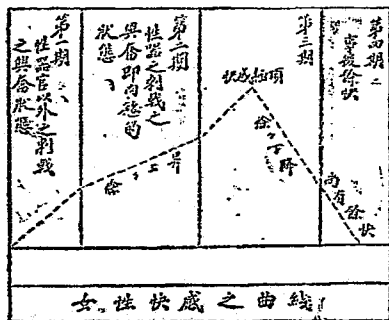 第一期
性器官以外之刺戟
之興奮狀態
第二期
性器之刺戟之
興奮即肉慾的
狀態
徐々上昇
第三期
徐々下降
第四期
事後餘快
尚有餘快
女性快感之曲线